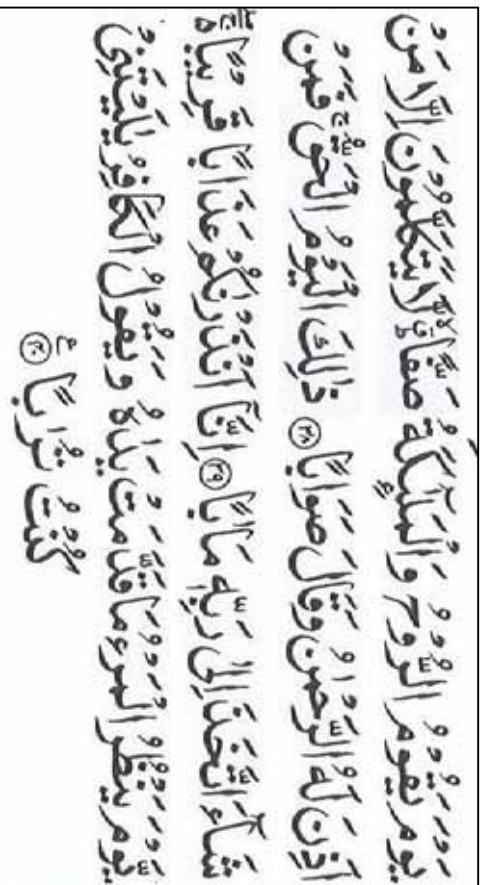 يَوْمَ يَقُوْمُ الرُّوْحُ وَالْمَلٰٓئِكَةُ صَفًّا ۙ ق لَّا يَتَكَلَّمُوْنَ اِلَّا مَنْ
اَذِنَ لَهُ الرَّحْمٰنُ وَقَالَ صَوَابًا ﴿۳۸﴾ ذٰلِكَ الْيَوْمُ الْحَقُّ ۚ فَمَنْ
شَآءَ اتَّخَذَ اِلٰى رَبِّهٖ مَاٰبًا ﴿۳۹﴾ اِنَّاۤ اَنْذَرْنٰكُمْ عَذَابًا قَرِيْبًا
يَّوْمَ يَنْظُرُ الْمَرْءُ مَا قَدَّمَتْ يَدٰهُ وَيَقُوْلُ الْكٰفِرُ يٰلَيْتَنِيْ
كُنْتُ تُرٰبًا ﴿۴۰﴾ ع